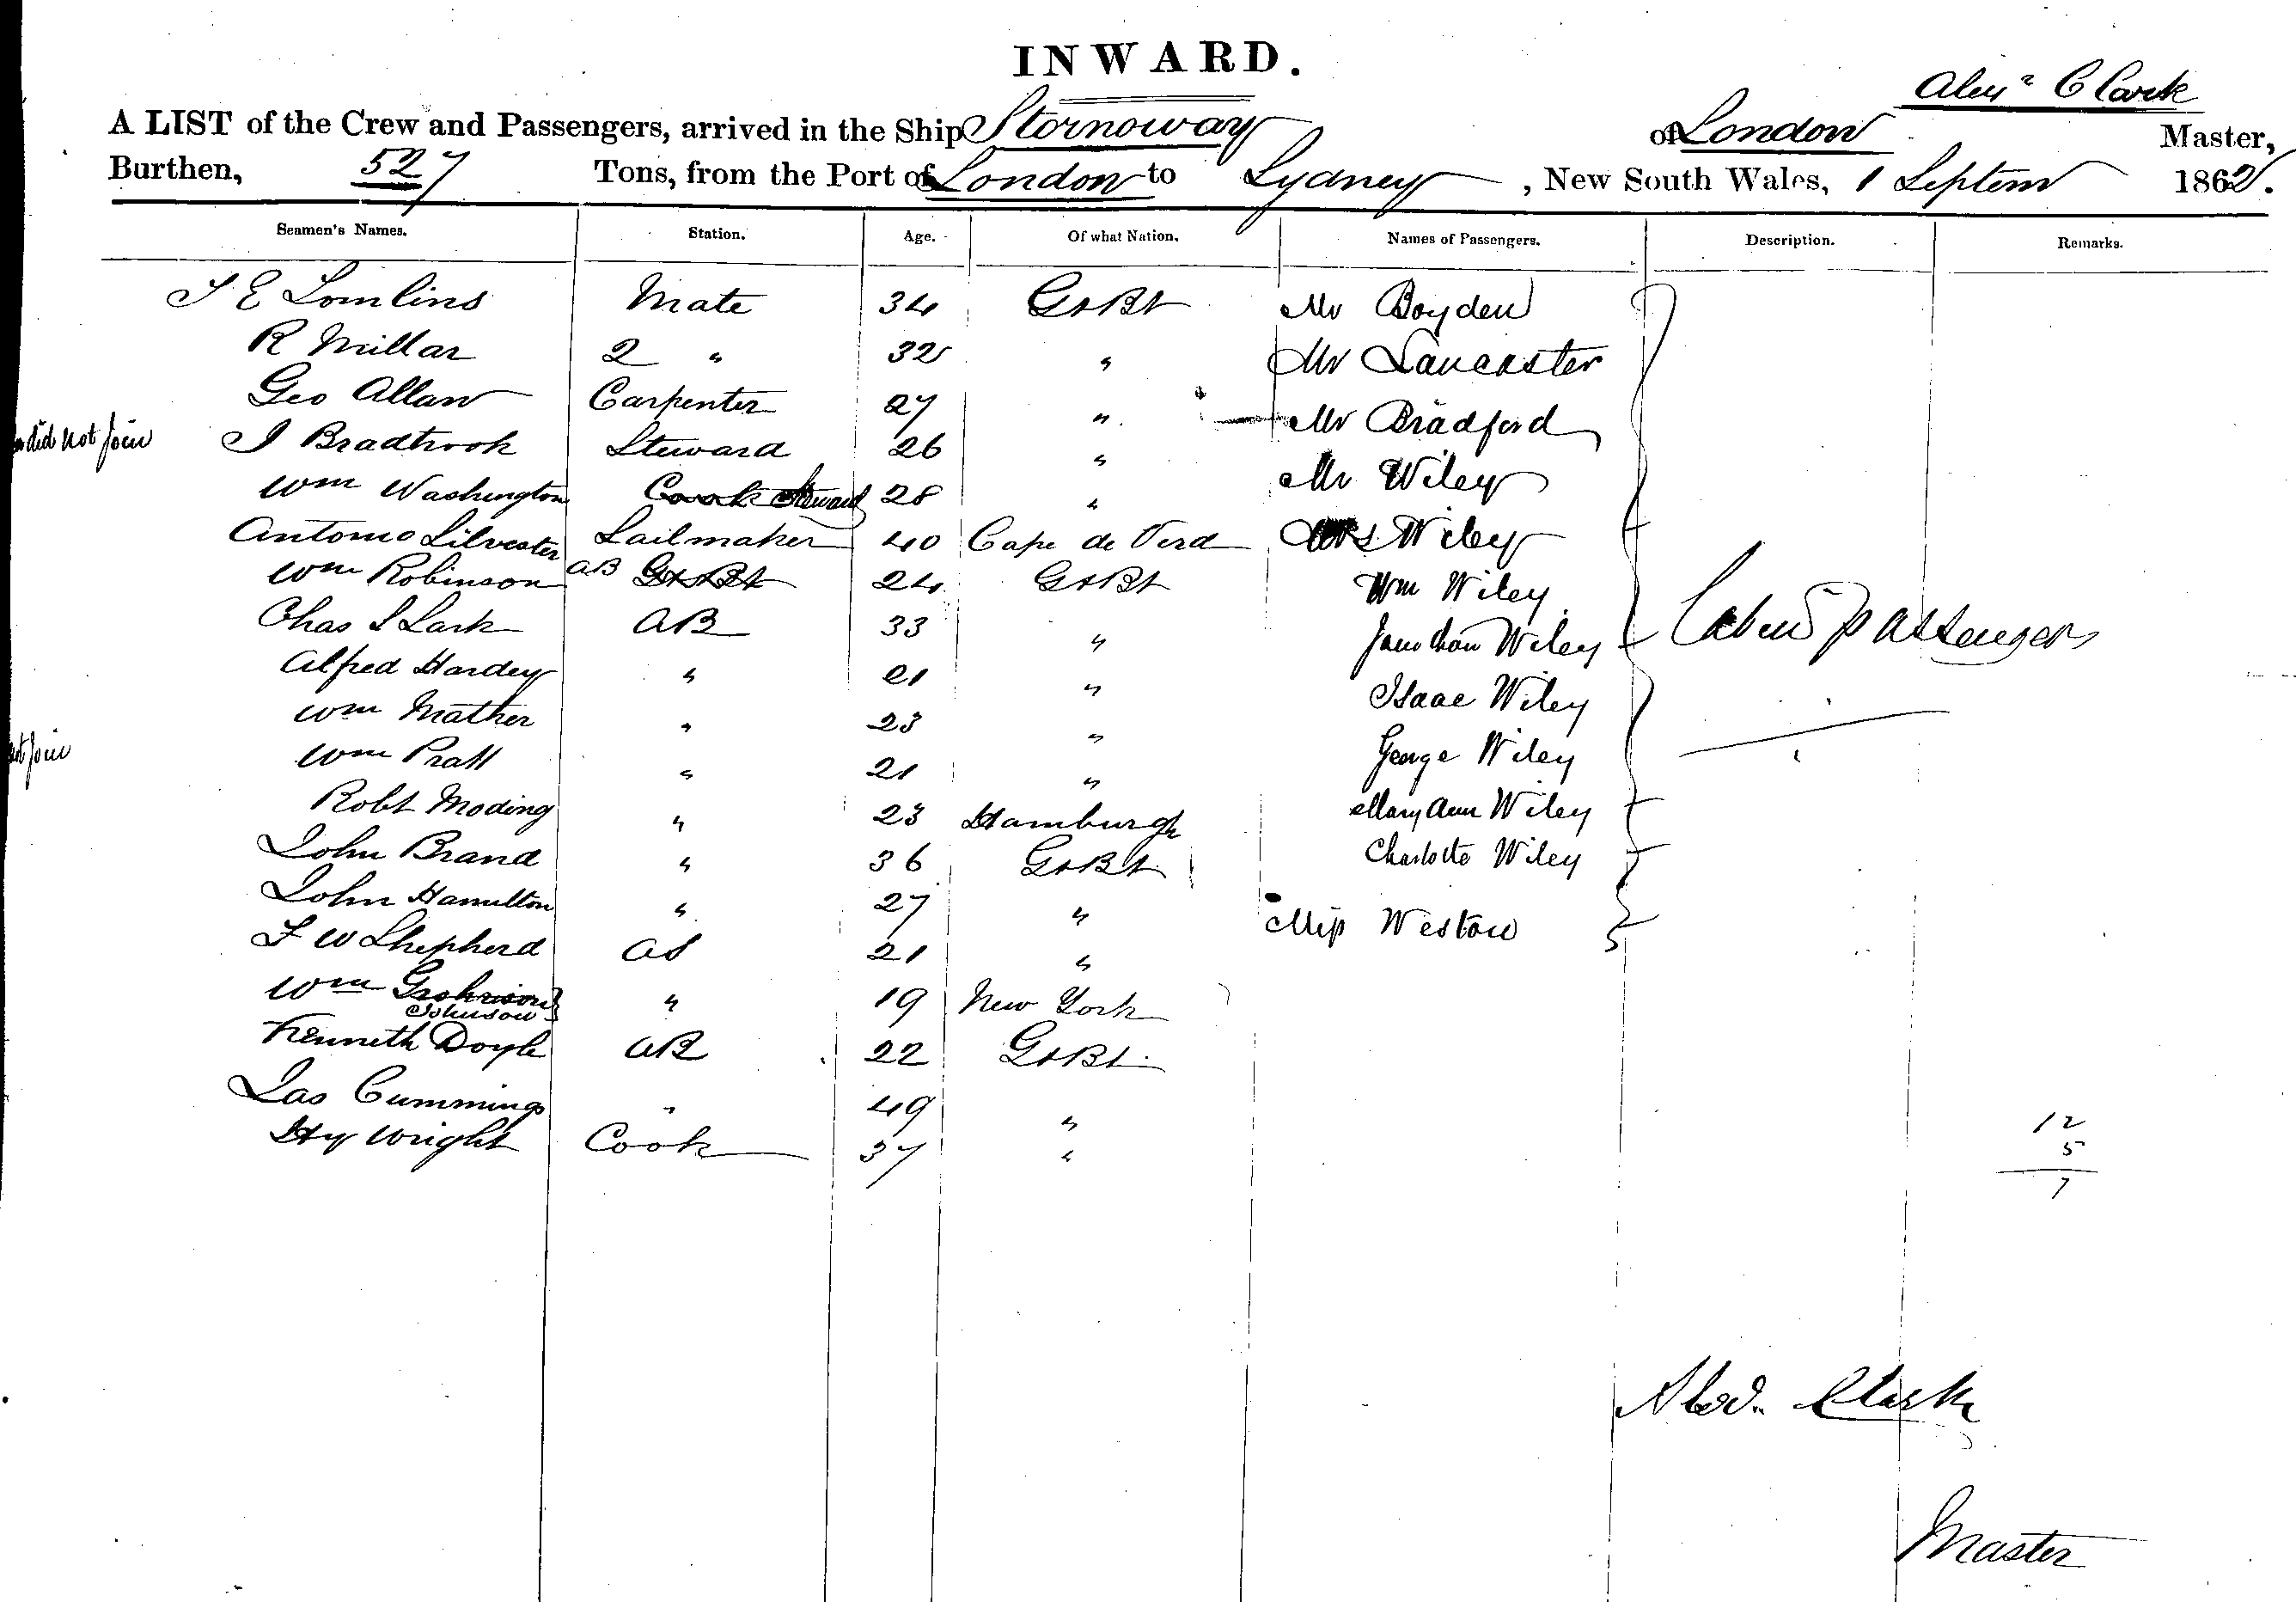 INWARD.
Alexr Clark
A LIST of the Crew and Passengers, arrived in the Ship Stornoway of London Master,
Burthen, 527 Tons, from the Port of London to Sydney, New South Wales, 1 Septem 1862.
Seamen's Names. Station. Age. Of what Nation. Names of Passengers. Description. Remarks.
T E Tomlins Mate 34 Gt Bt Mr Boyden
R Millar 2 " 32 " Mr Lancaster
Geo Allan Carpenter 27 " Mr Bradford
did not join J Bradbrook Steward 26 " Mr Wiley
Wm Washington Cook Steward 28 " Mrs Wiley
Antonio Silvester Sailmaker 40 Cape de Verd Wm Wiley
Wm Robinson AB Gt Bt 24 Gt Bt Jonathan Wiley Cabin passengers
Chas S Lark AB 33 " Isaac Wiley
Alfred Hardey " 21 " George Wiley
Wm Mather " 23 " Mary Ann Wiley
not join Wm Pratt " 21 " Charlotte Wiley
Robt Moding " 23 Hamburgh Miss Weston
John Brand " 36 Gt Bt
John Hamilton " 27 "
F W Shepherd OS 21 "
Wm Johnson " 19 New York
Kenneth Doyle AB 22 Gt Bt
Jas Cummings " 49 "
Hy Wright Cook 37 "
12
5
7
Alexr. Clark
Master